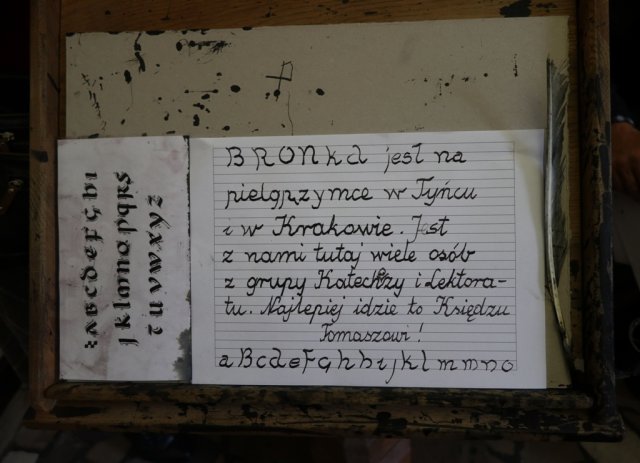 abcdefghi
jklmnopqrs
tuvwxyz
BRONka jest na
pielgrzymce w Tyńcu
i w Krakowie. Jest
z nami tutaj wiele osób
z grupy Katechezy i Lektora-
tu. Najlepiej idzie to Księdzu
Tomaszowi!
aBcdefghhijklmmno